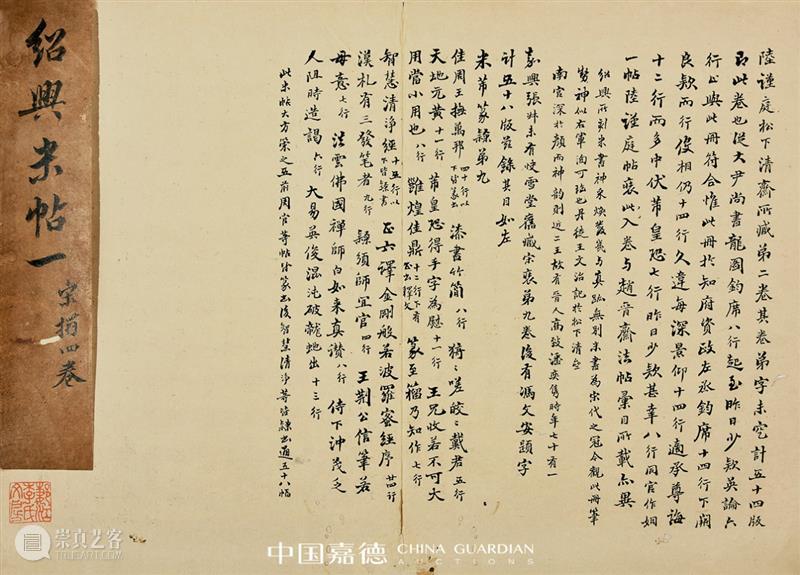 陸謹庭松下清齋所藏第二卷其卷弟字未完計五十四版
即此卷也從大尹尚書龍圖鈞席八行起至昨日少款英論六
行止與此冊符合惟此冊於知府資政左丞鈞席十四行下闕
良款兩行復相仍十四行久違每深景仰十四行適承尊誨
十二行而多中伏芾皇恐七行昨日少款甚幸八行同官作姻
一帖陸謹庭帖裝此入卷与趙晉齋法帖彙目所載亦異
紹興所刻米書神采煥發幾与真跡無別米書為宋代之冠今觀此冊筆
勢神似右軍洵可珍也丹徒王文治記於松下清齋
南宮深於顏而神韵則近二王故有晉人高致濂廣隽時年七十有一
嘉興張叔未有快雪堂舊藏宋裝第九卷後有馮文安題字
計五十八版茲錄其目如左
米芾篆隸第九
佳周王撫萬邦 四十行以下皆篆書 漆書竹簡 八行 猗猗嗟皎皎載君 五行
天地元黃 十一行 芾皇恐得手字為慰 十一行 王兄收若不可大
用當小用也 八行 雖煌佳鼎 十二行下有正書釋文 篆至籀乃知作 七行
智慧清淨經 十五行以下皆隸書 正六譯金剛般若波羅蜜經序 廿四行
漢札有三發筆者 九行 隸須師宜官 四行 王荊公信筆若
毋意 七行 法雲佛國禪師白如来真讚 八行 侍下沖茂乏
人阻時造謁 六行 大易吳俊混沌破龍蛇出 十三行
此米帖大方棠之五前周官等帖分篆書後智慧清淨等皆隸書通五十八幅
紹興米帖一
宋搨四卷
崇真艺客
中国嘉德 CHINA GUARDIAN
AUCTIONS